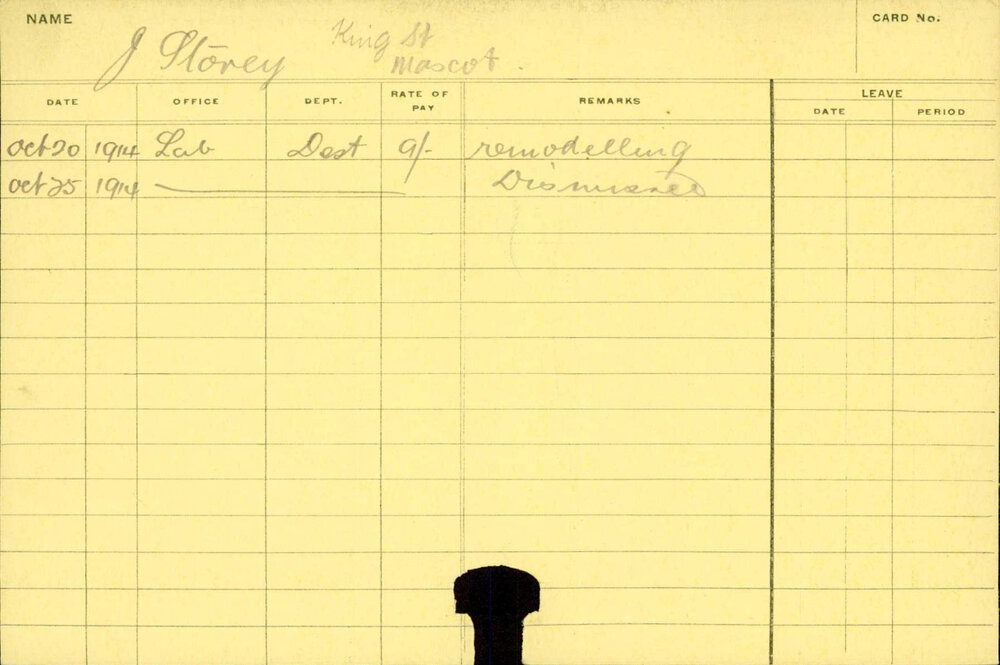 NAME
J Storey
King St
Mascot.
CARD No.
DATE OFFICE DEPT. RATE OF PAY REMARKS LEAVE
DATE PERIOD
Oct 20 1914 Lab Dest 9/- remodelling
Oct 25 1914 Dismissed